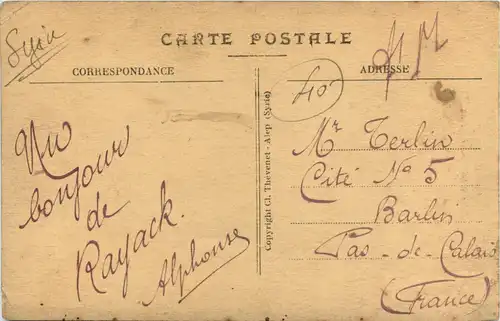 Syrie
CARTE POSTALE
F M
CORRESPONDANCE
ADRESSE
40
Un
bonjour
de
Rayack.
Alphonse
Copyright Cl. Thévenet - Alep (Syrie)
Mr Terlin
Cité No 5
Barlin
Pas-de-Calais
(France)